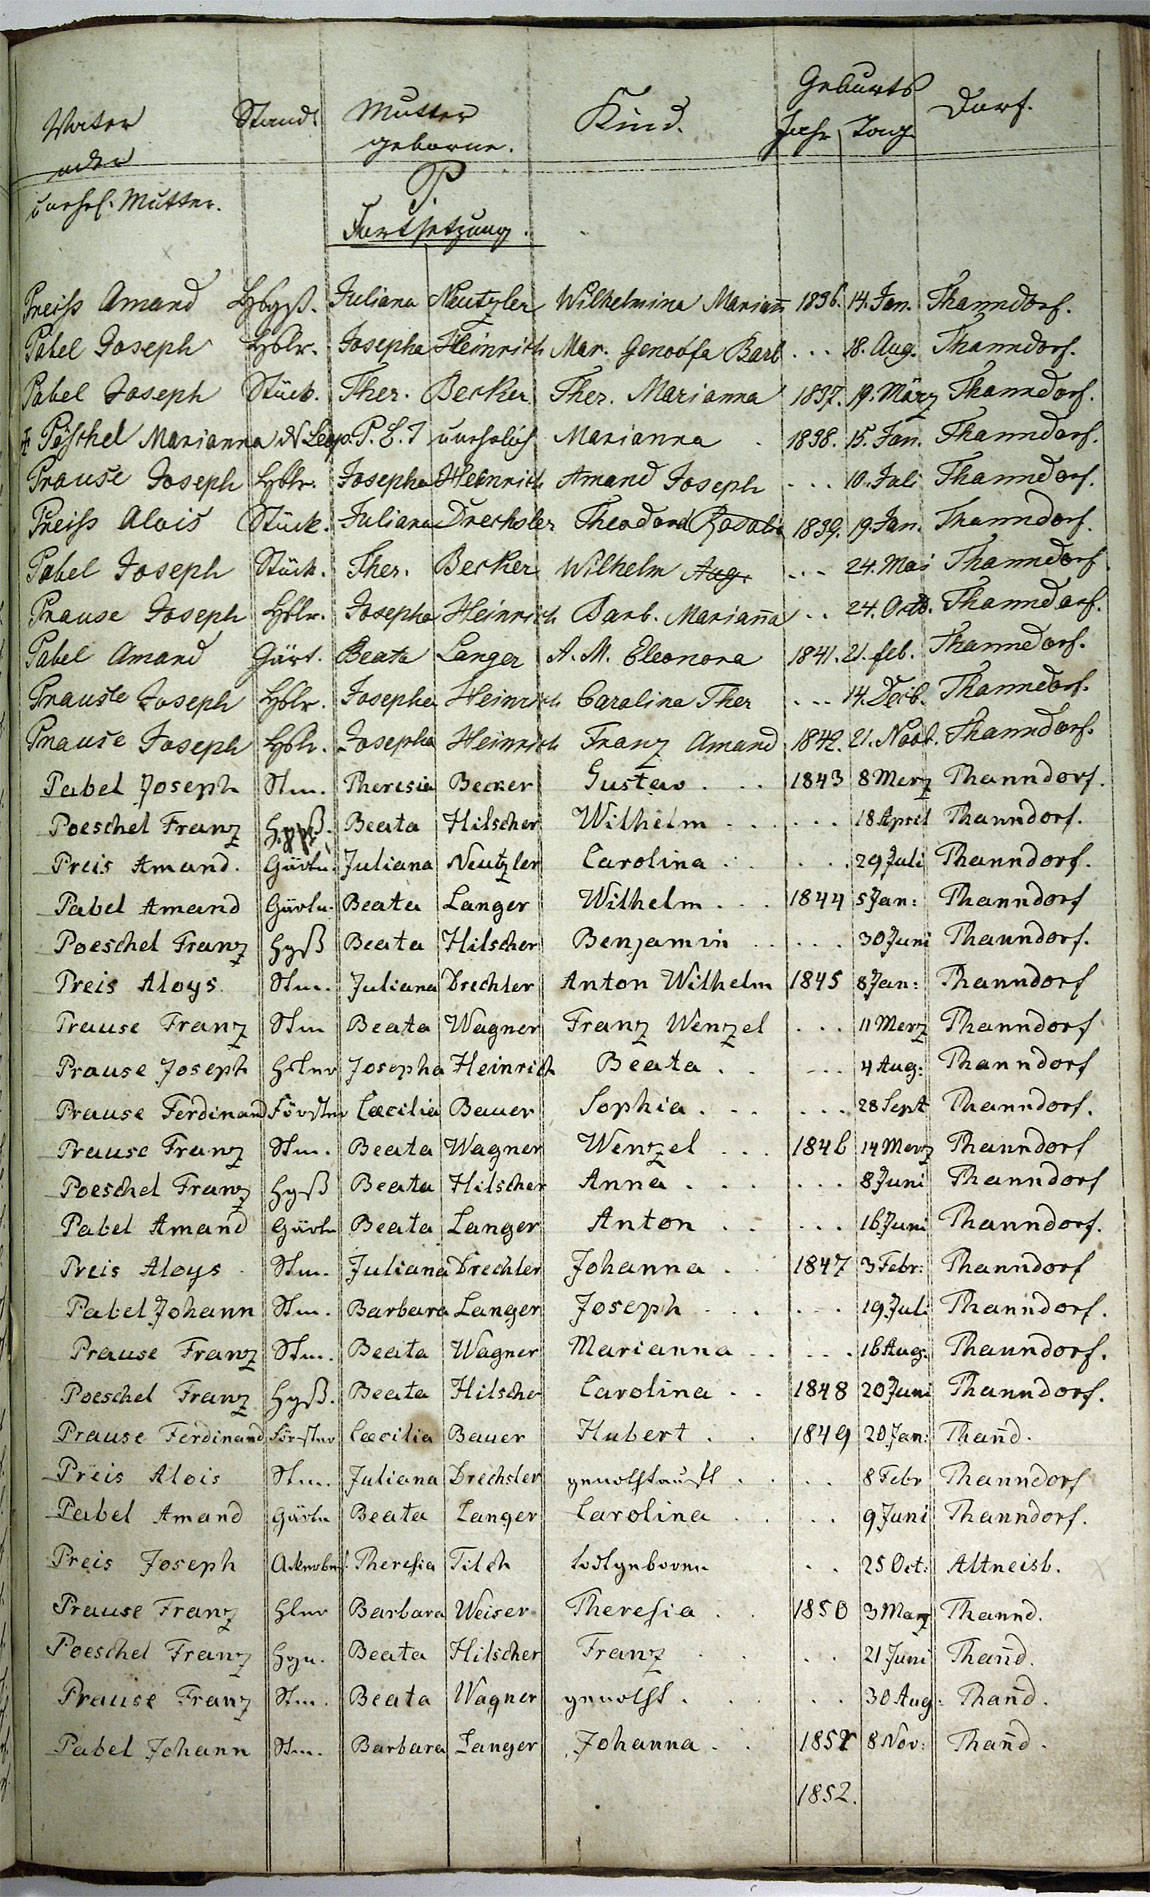 Vater
oder
unehl. Mutter.
Stand.
Mutter
geborne.
Kind.
Geburts
Jahr Tag
Dorf.
P.
Fortsetzung.
Preiss Amand Hbgß. Juliana Neutzler Wilhelmina Mariañ 1836. 14. Jan. Thanndorf.
Pabel Joseph Hblr. Josepha Heinrich Mar. Genovfa Barb ... 18. Aug. Thanndorf.
Pabel Joseph Stück. Ther. Becker Ther. Marianna 1837. 19. März Thanndorf.
Pöschel Marianna unehelich Marianna . 1838. 15. Jan. Thanndorf.
Prause Joseph Hblr. Josepha Heinrich Amand Joseph ... 10. Juli Thanndorf.
Preiss Alois Stück. Juliana Drechsler Theodora Rosalia 1839. 19. Jan. Thanndorf.
Pabel Joseph Stück. Ther. Becker Wilhelm Aug. ... 24. Mai Thanndorf.
Prause Joseph Hblr. Josepha Heinrich Barb. Mariaña ... 24. Octb. Thanndorf.
Pabel Amand Gärt. Beata Langer A. M. Eleonora 1841. 21. feb. Thanndorf.
Prause Joseph Hblr. Josepha Heinrich Carolina Ther ... 14. Decb. Thanndorf.
Prause Joseph Hblr. Josepha Heinrich Franz Amand 1842. 21. Novb. Thanndorf.
Pabel Joseph Stm. Theresia Becker Gustav ... 1843 8 Merz Thanndorf.
Poeschel Franz Beata Hilscher Wilhelm ... ... 18 April Thanndorf.
Preis Amand. Gärtn. Juliana Neutzler Carolina . ... 29 Juli Thanndorf.
Pabel Amand Gärtn. Beata Langer Wilhelm ... 1844 5 Jan: Thanndorf
Poeschel Franz Hgß Beata Hilscher Benjamin .. ... 30 Juni Thanndorf.
Preis Aloys Stm. Juliana Drechler Anton Wilhelm 1845 8 Jan: Thanndorf
Prause Franz Stm Beata Wagner Franz Wenzel ... 11 Merz Thanndorf
Prause Joseph Hslr Josepha Heinrich Beata .. ... 4 Aug: Thanndorf
Prause Ferdinand Förster Cæcilia Bauer Sophia ... ... 28 Sept Thanndorf.
Prause Franz Stm. Beata Wagner Wenzel ... 1846 14 Merz Thanndorf
Poeschel Franz Hgß Beata Hilscher Anna .... ... 8 Juni Thanndorf
Pabel Amand Gärtn Beata Langer Anton .. ... 16 Juni Thanndorf.
Preis Aloys Stm. Juliana Drechler Johanna .. 1847 3 Febr: Thanndorf
Pabel Johann Stm. Barbara Langer Joseph ... ... 19 Juli Thanndorf.
Prause Franz Stm. Beata Wagner Marianna .. ... 16 Aug. Thanndorf.
Poeschel Franz Hgß. Beata Hilscher Carolina .. 1848 20 Juni Thanndorf.
Prause Ferdinand Förster Cæcilia Bauer Hubert .. 1849 20 Jan: Thañd.
Preis Alois Stm. Juliana Drechsler genothtauft . .. 8 Febr Thanndorf
Pabel Amand Gärtn Beata Langer Carolina .. .. 9 Juni Thanndorf.
Preis Joseph Theresia Tilch todtgeboren .. 25 Oct: Altneisb.
Prause Franz Hslr Barbara Weiser Theresia .. 1850 3 Marz Thannd.
Poeschel Franz Beata Hilscher Franz . .. 21 Juni Thañd.
Prause Franz Stm. Beata Wagner genotht . .. 30 Aug: Thañd.
Pabel Johann Stm. Barbara Langer Johanna .. 1851 8 Nov: Thañd.
1852.